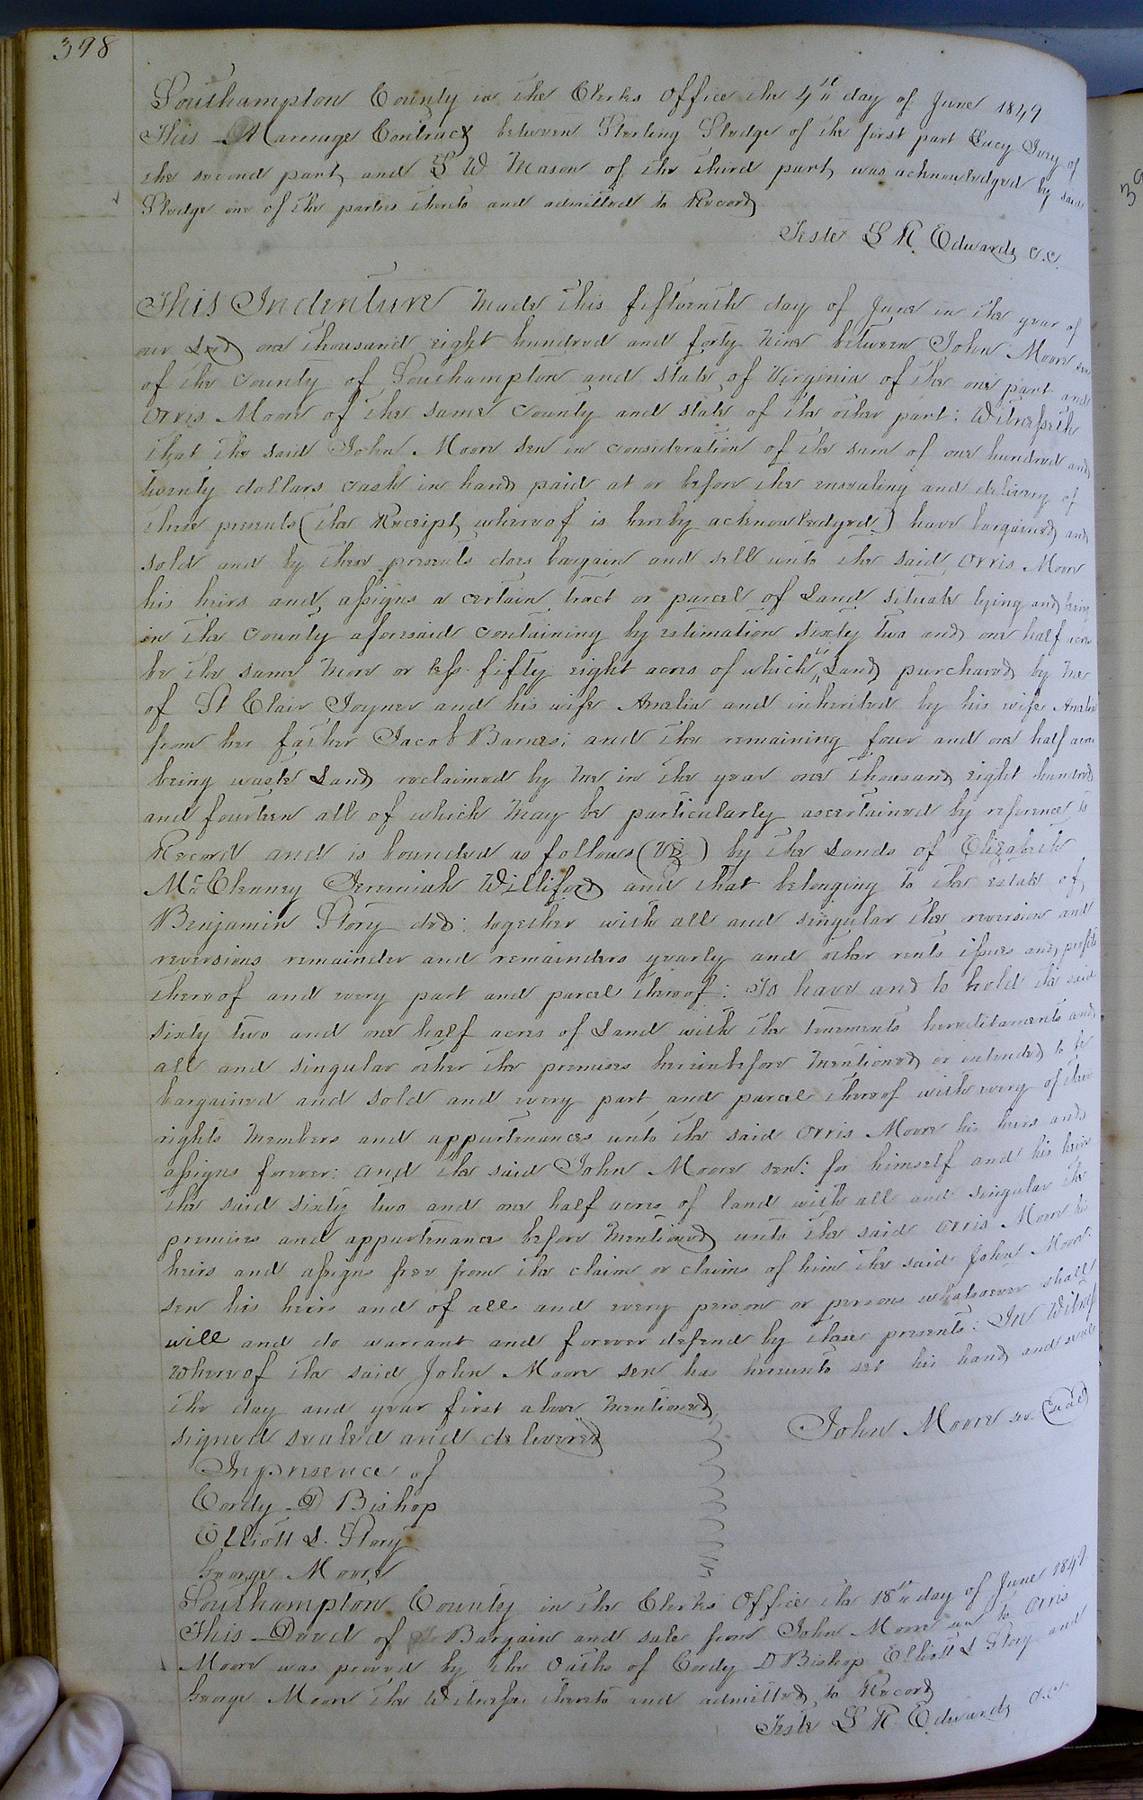 398
Southampton County in the Clerks Office the 4th day of June 1849
This Marriage Contract between Sterling Pledge of the first part Lucy Ivey of
the second part and S W Mason of the third part was acknowledged by said
Pledge one of the parties thereto and admitted to Record
Teste L R Edwards c.c.
This Indenture Made this fifteenth day of June in the year of
our Lord one thousand eight hundred and forty Nine between John Moore sen
of the County of Southampton and state of Virginia of the one part and
Orris Moore of the same County and state of the other part: Witnesseth
that the said John Moore sen in consideration of the sum of one hundred and
twenty dollars cash in hand paid at or before the ensealing and delivery of
these presents (the Receipt whereof is hereby acknowledged) have bargained and
sold and by these presents does bargain and sell unto the said Orris Moore
his heirs and assigns a certain tract or parcel of Land situate lying and being
in the County aforesaid containing by estimation sixty two and one half acres
be the same More or less fifty eight acres of which Land purchased by me
of St Clair Joyner and his wife Amelia and inherited by his wife Amelia
from her father Jacob Barnes; and the remaining four and one half acres
being waste Land reclaimed by me in the year one thousand eight hundred
and fourteen all of which May be particularly ascertained by reference to
Record and is bounded as follows (Viz) by the Lands of Elizabeth
McClenney Jeremiah Williford and that belonging to the estate of
Benjamin Story decd: together with all and singular the reversion and
reversions remainder and remainders yearly and other rents issues and profits
thereof and every part and parcel thereof: To have and to hold the said
sixty two and one half acres of Land with the tenements hereditaments and
all and singular other the premises hereinbefore Mentioned or intended to be
bargained and sold and every part and parcel thereof with every of their
rights Members and appurtenances unto the said Orris Moore his heirs and
assigns forever: and the said John Moore sen: for himself and his heirs
the said sixty two and one half acres of land with all and singular the
premises and appurtenances before Mentioned unto the said Orris Moore his
heirs and assigns free from the claim or claims of him the said John Moore
sen his heirs and of all and every person or persons whatsoever shall
will and do warrant and forever defend by these presents: In Witness
whereof the said John Moore sen has hereunto set his hand and seal
the day and year first above Mentioned
signed sealed and delivered
John Moore sen (Seal)
In presence of
Cordy D Bishop
Elliott L. Story
George Moore
Southampton County in the Clerks Office the 18th day of June 1849
This Deed of Bargain and sale from John Moore sen to Orris
Moore was proved by the Oaths of Cordy D Bishop Elliott L Story and
George Moore the Witnesses thereto and admitted to Record
Teste L R Edwards c.c.